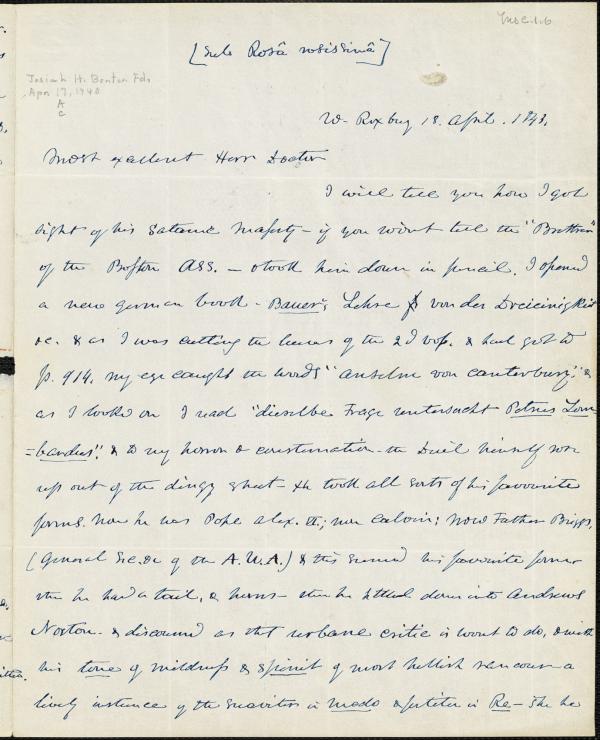 [Sub Rosâ rosissimâ]
Josiah H. Benton Fds
Apr. 17, 1940
A
C
W. Roxbury 18. April. 1843.
Most excellent Herr Doctor
I will tell you how I got
sight of his Satanic Majesty — if you wont tell the "Brethren"
of the Boston Ass. — & took him down in pencil. I opened
a new german book — Bauer's Lehre von der Dreieinigkeit
&c. & as I was cutting the leaves of the 2d vol. & had got to
p. 914. my eye caught the words "Anselm von Canterbury," &
as I looked on I read "dieselbe Frage untersucht Petrus Lom
=bardus". & to my horror & consternation — the Devil himself rose
up out of the dingy sheet — He took all sorts of his favourite
forms. Now he was Pope Alex. VI; now Calvin; Now Father Briggs,
(General Sec. of the A.U.A.) & this seemed his favourite former
then he had a tail, & horns — then he settled down into Andrews
Norton — & discoursed as that urbane critic is wont to do, & with
his tone of mildness & spirit of most hellish rancour a
lively instance of the suaviter in modo & fortiter in Re — he